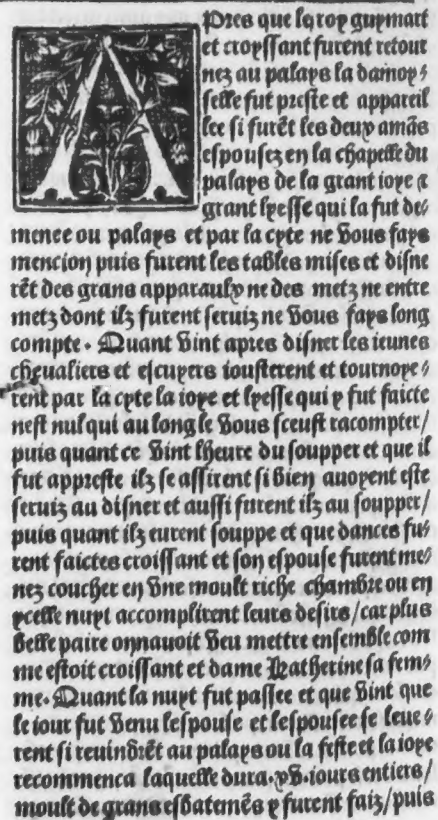 APres que le roy guymart
et croyssant furent retour
nez au palays la damoy⸗
selle fut preste et appareil
lee si furēt les deux amās
espousez en la chapelle du
palays de la grant ioye ⁊
grant lyesse qui la fut de⸗
menee ou palays et par la cyte ne vous fays
mencion puis furent les tables mises et disne
rēt des grans apparaulx ne des metz ne entre
metz dont ilz furent seruiz ne vous fays long
compte. Quant vint apres disner les ieunes
cheualiers et escuyers iousterent et tournoye⸗
rent par la cyte la ioye et lyesse qui y fut faicte
nest nul qui au long le vous sceust racompter/
puis quant ce vint lheure du soupper et que il
fut appreste ilz se assirent si bien auoyent este
seruiz au disner et aussi furent ilz au soupper/
puis quant ilz eurent souppe et que dances fu⸗
rent faictes croissant et son espouse furent me⸗
nez coucher en vne moult riche chambre ou en
ycelle nuyt accomplirent leurs desirs/car plus
belle paire onnauoit veu mettre ensemble com
me estoit croissant et dame Katherine sa fem⸗
me. Quant la nuyt fut passee et que vint que
le iour fut venu lespouse et lespousee se leue⸗
rent si reuindrēt au palays ou la feste et la ioye
recommenca laquelle dura.xv.iours entiers/
moult de grans esbatemēs y furent faiz/puis